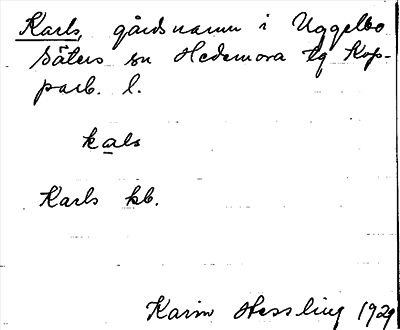 Karls, gårdsnamn i Uggelbo
Säters sn Hedemora tg Kop-
parb. l.
kals
Karls kb.
Karin Hessling 1929